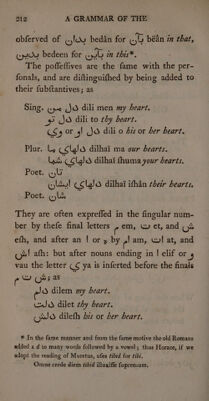 212 A GRAMMAR OF THE
observed of بدان bedân for بآن beân in that,
بدین bedeen for باین in this*.
The possessives are the same with the per-
sonals, and are distinguished by being added to
their substantives; as
Sing. دل من dili men my heart.
دل تو dili to thy heart.
دل او or وی dili o his or her heart.
Plur. دلهای ما dilhaï ma our hearts.
دلهای شما dilhaï shuma your hearts.
Poet. تان
دلهای ایشان dilhaï ishân their hearts.
Poet. شان
They are often expressed in the singular num-
ber by these final letters م em, ت et, and ش
esh, and after an ا or ه by ام am, ات at, and
اش ash: but after nouns ending in ا elif or و
vau the letter ی ya is inserted before the finals
م ت ش; as
دلم dilem my heart.
دلت dilet thy heart.
دلش dilesh his or her heart.
* In the same manner and from the same motive the old Romans
added a d to many words followed by a vowel; thus Horace, if we
adopt the reading of Muretus, uses tibid for tibi.
Omne crede diem tibid illuxisse supremum.